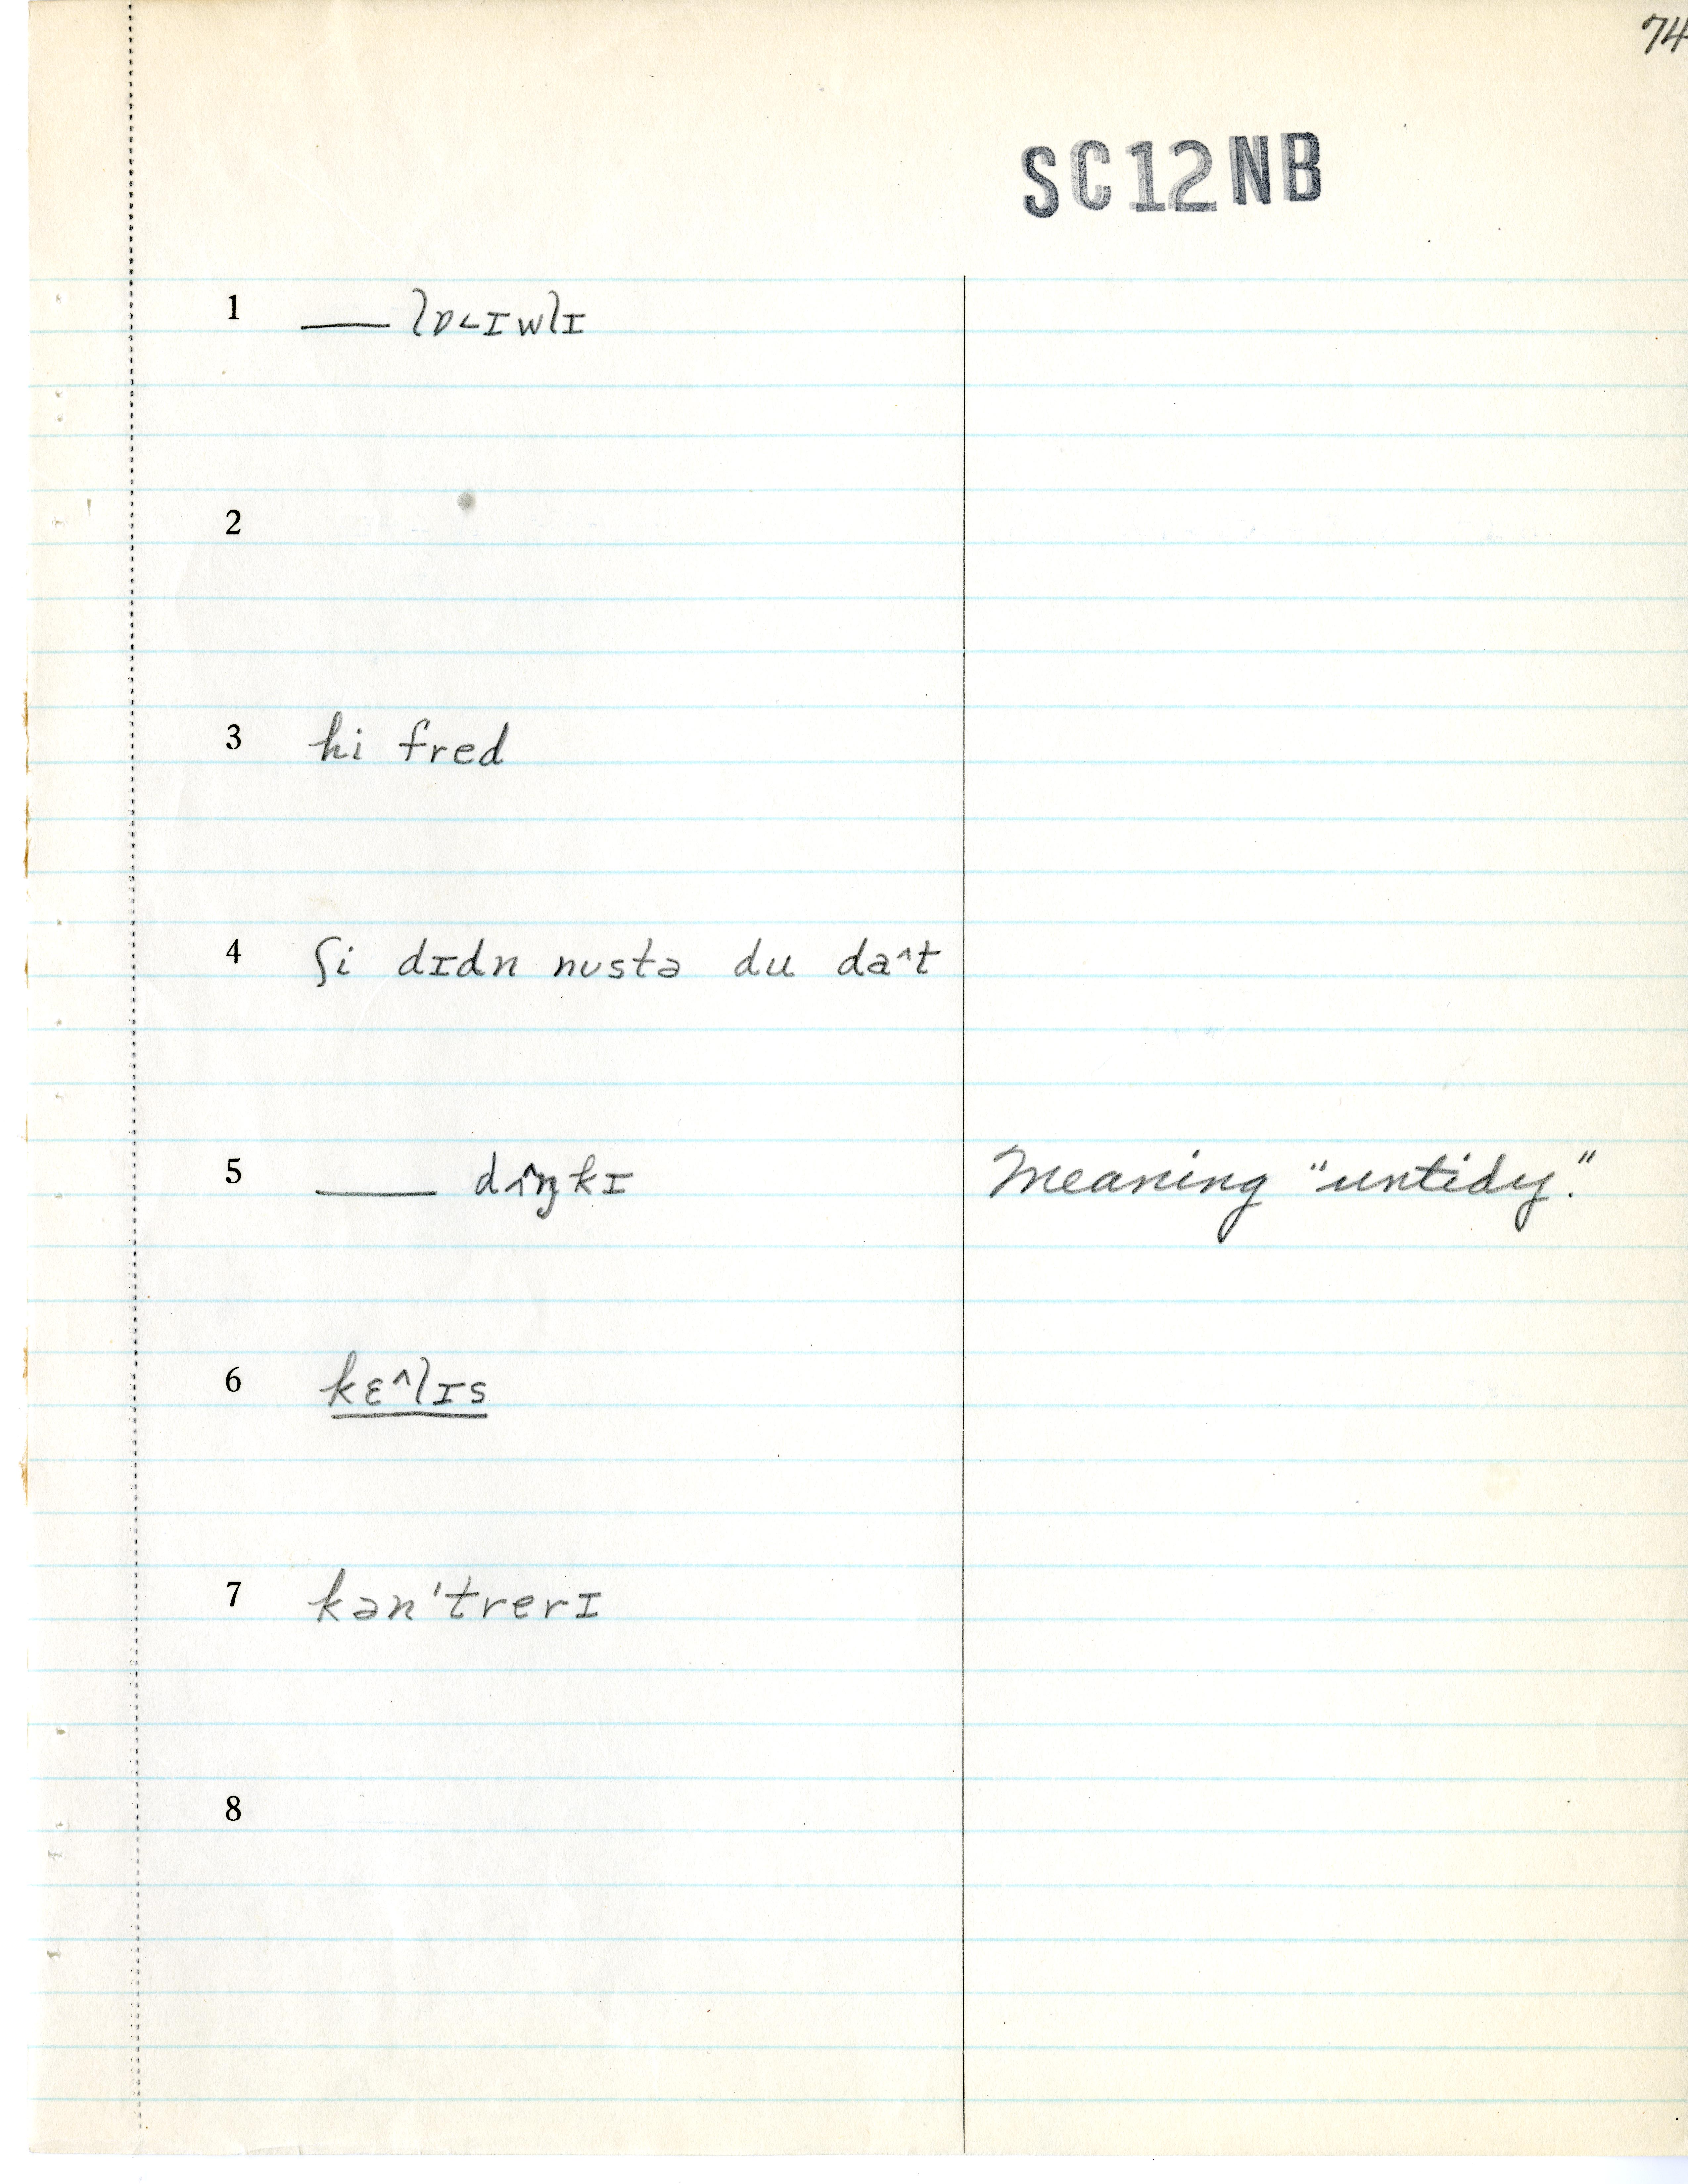 74
SC12NB
1 —— lɒ˂ɪwlɪ
2
3 hi fred
4 ʃi dɪdn nustə du da^t
5 —— dɪ^ŋkɪ Meaning "untidy."
6 kɛ^lɪs
7 kən'trerɪ
8